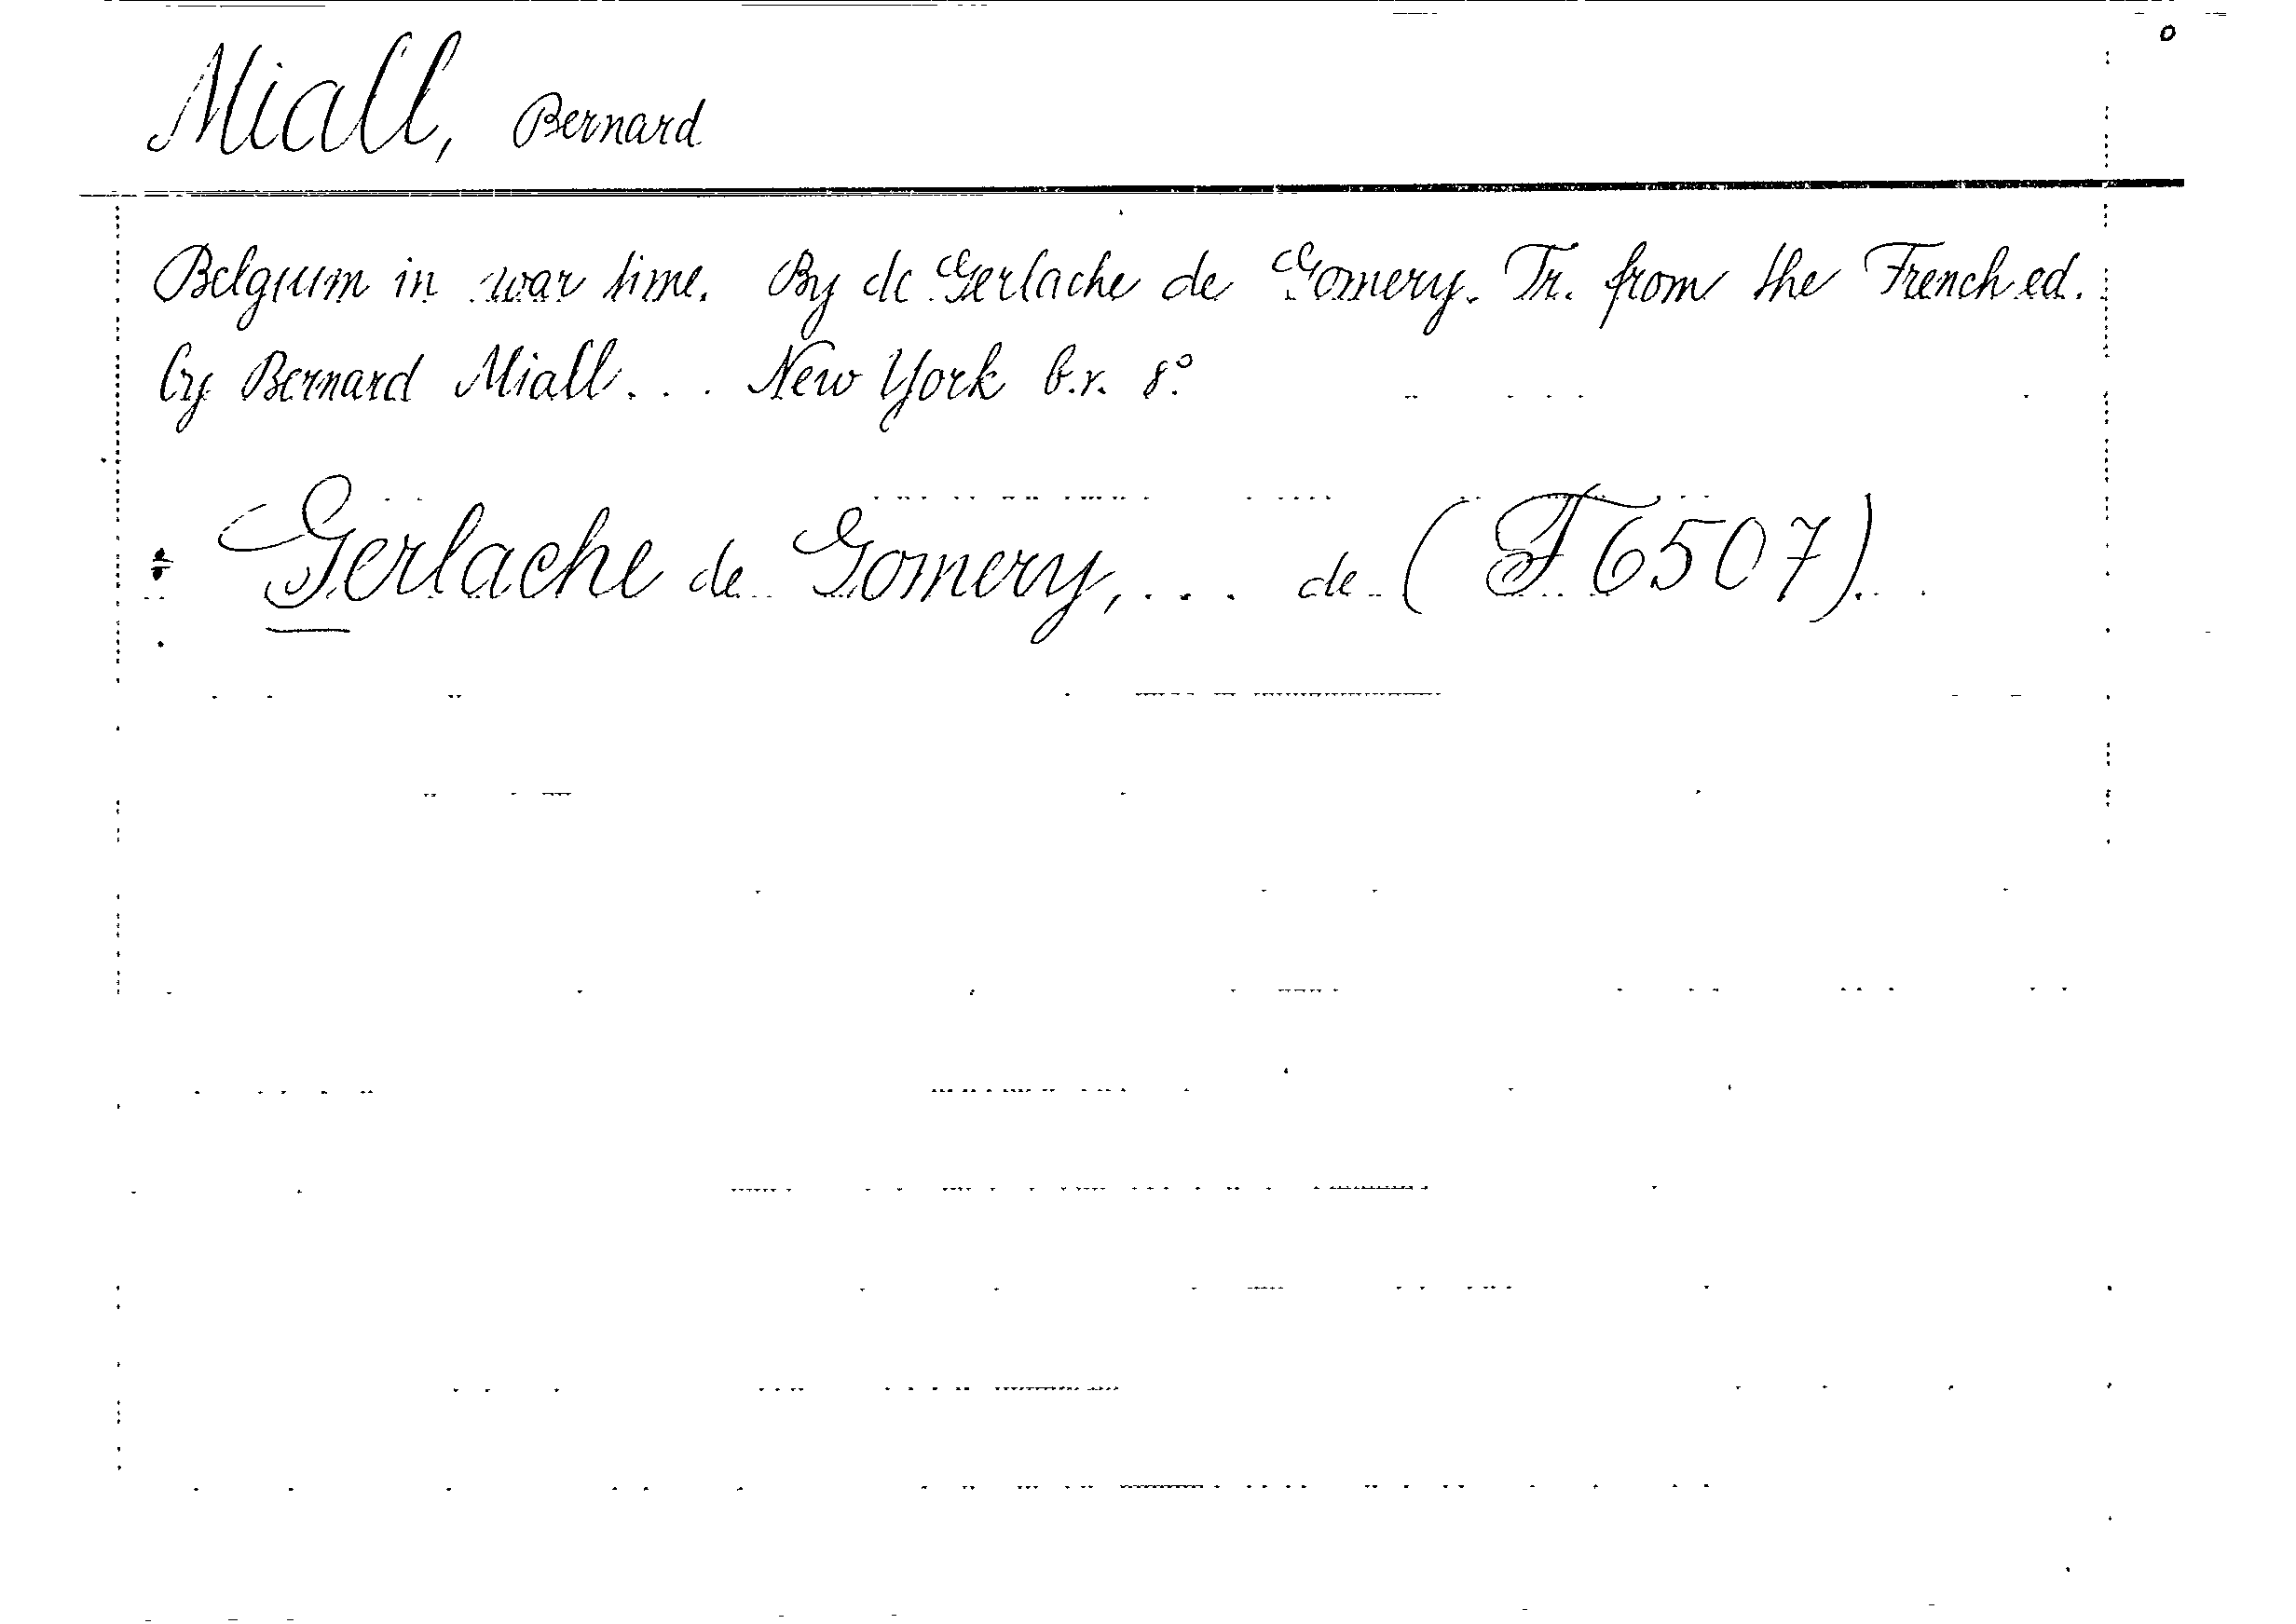 Miall, Bernard
Belgium in war time. By de Gerlache de Gomery. Tr. from the French ed.
by Bernard Miall... New York b.r. 8°
Gerlache de Gomery,... de (F 6507)